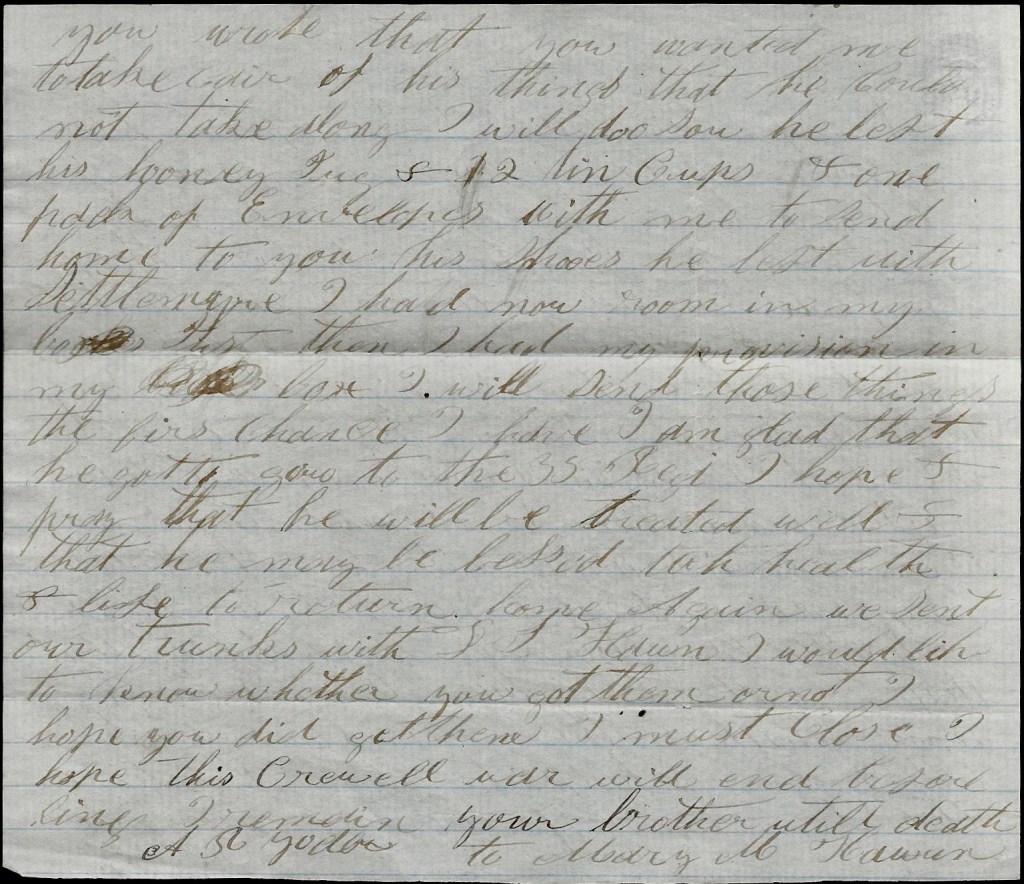 you wrote that you wanted me
to take cair of his things that he Could
not take along I will doo Sow he left
his honey Jug & 12 tin Cups & one
pack of Envelopes with me to Send
home to you his Shoes he left with
Settlemyre I had now room in my
Just then I had my provision in
my box I will Send those things
the firs Chance I have I am glad that
he got to gow to the 35 Regt I hope &
pray that he will be treated well &
that he may be blessid with health
& life to return home Again we Sent
our trunks with Hawn I would lik
to know whether you got them or not I
hope you did get them I must Close I
hope this Crewell war will end before
long I remain your brother util death
A R Yoder to Mary M Hawn